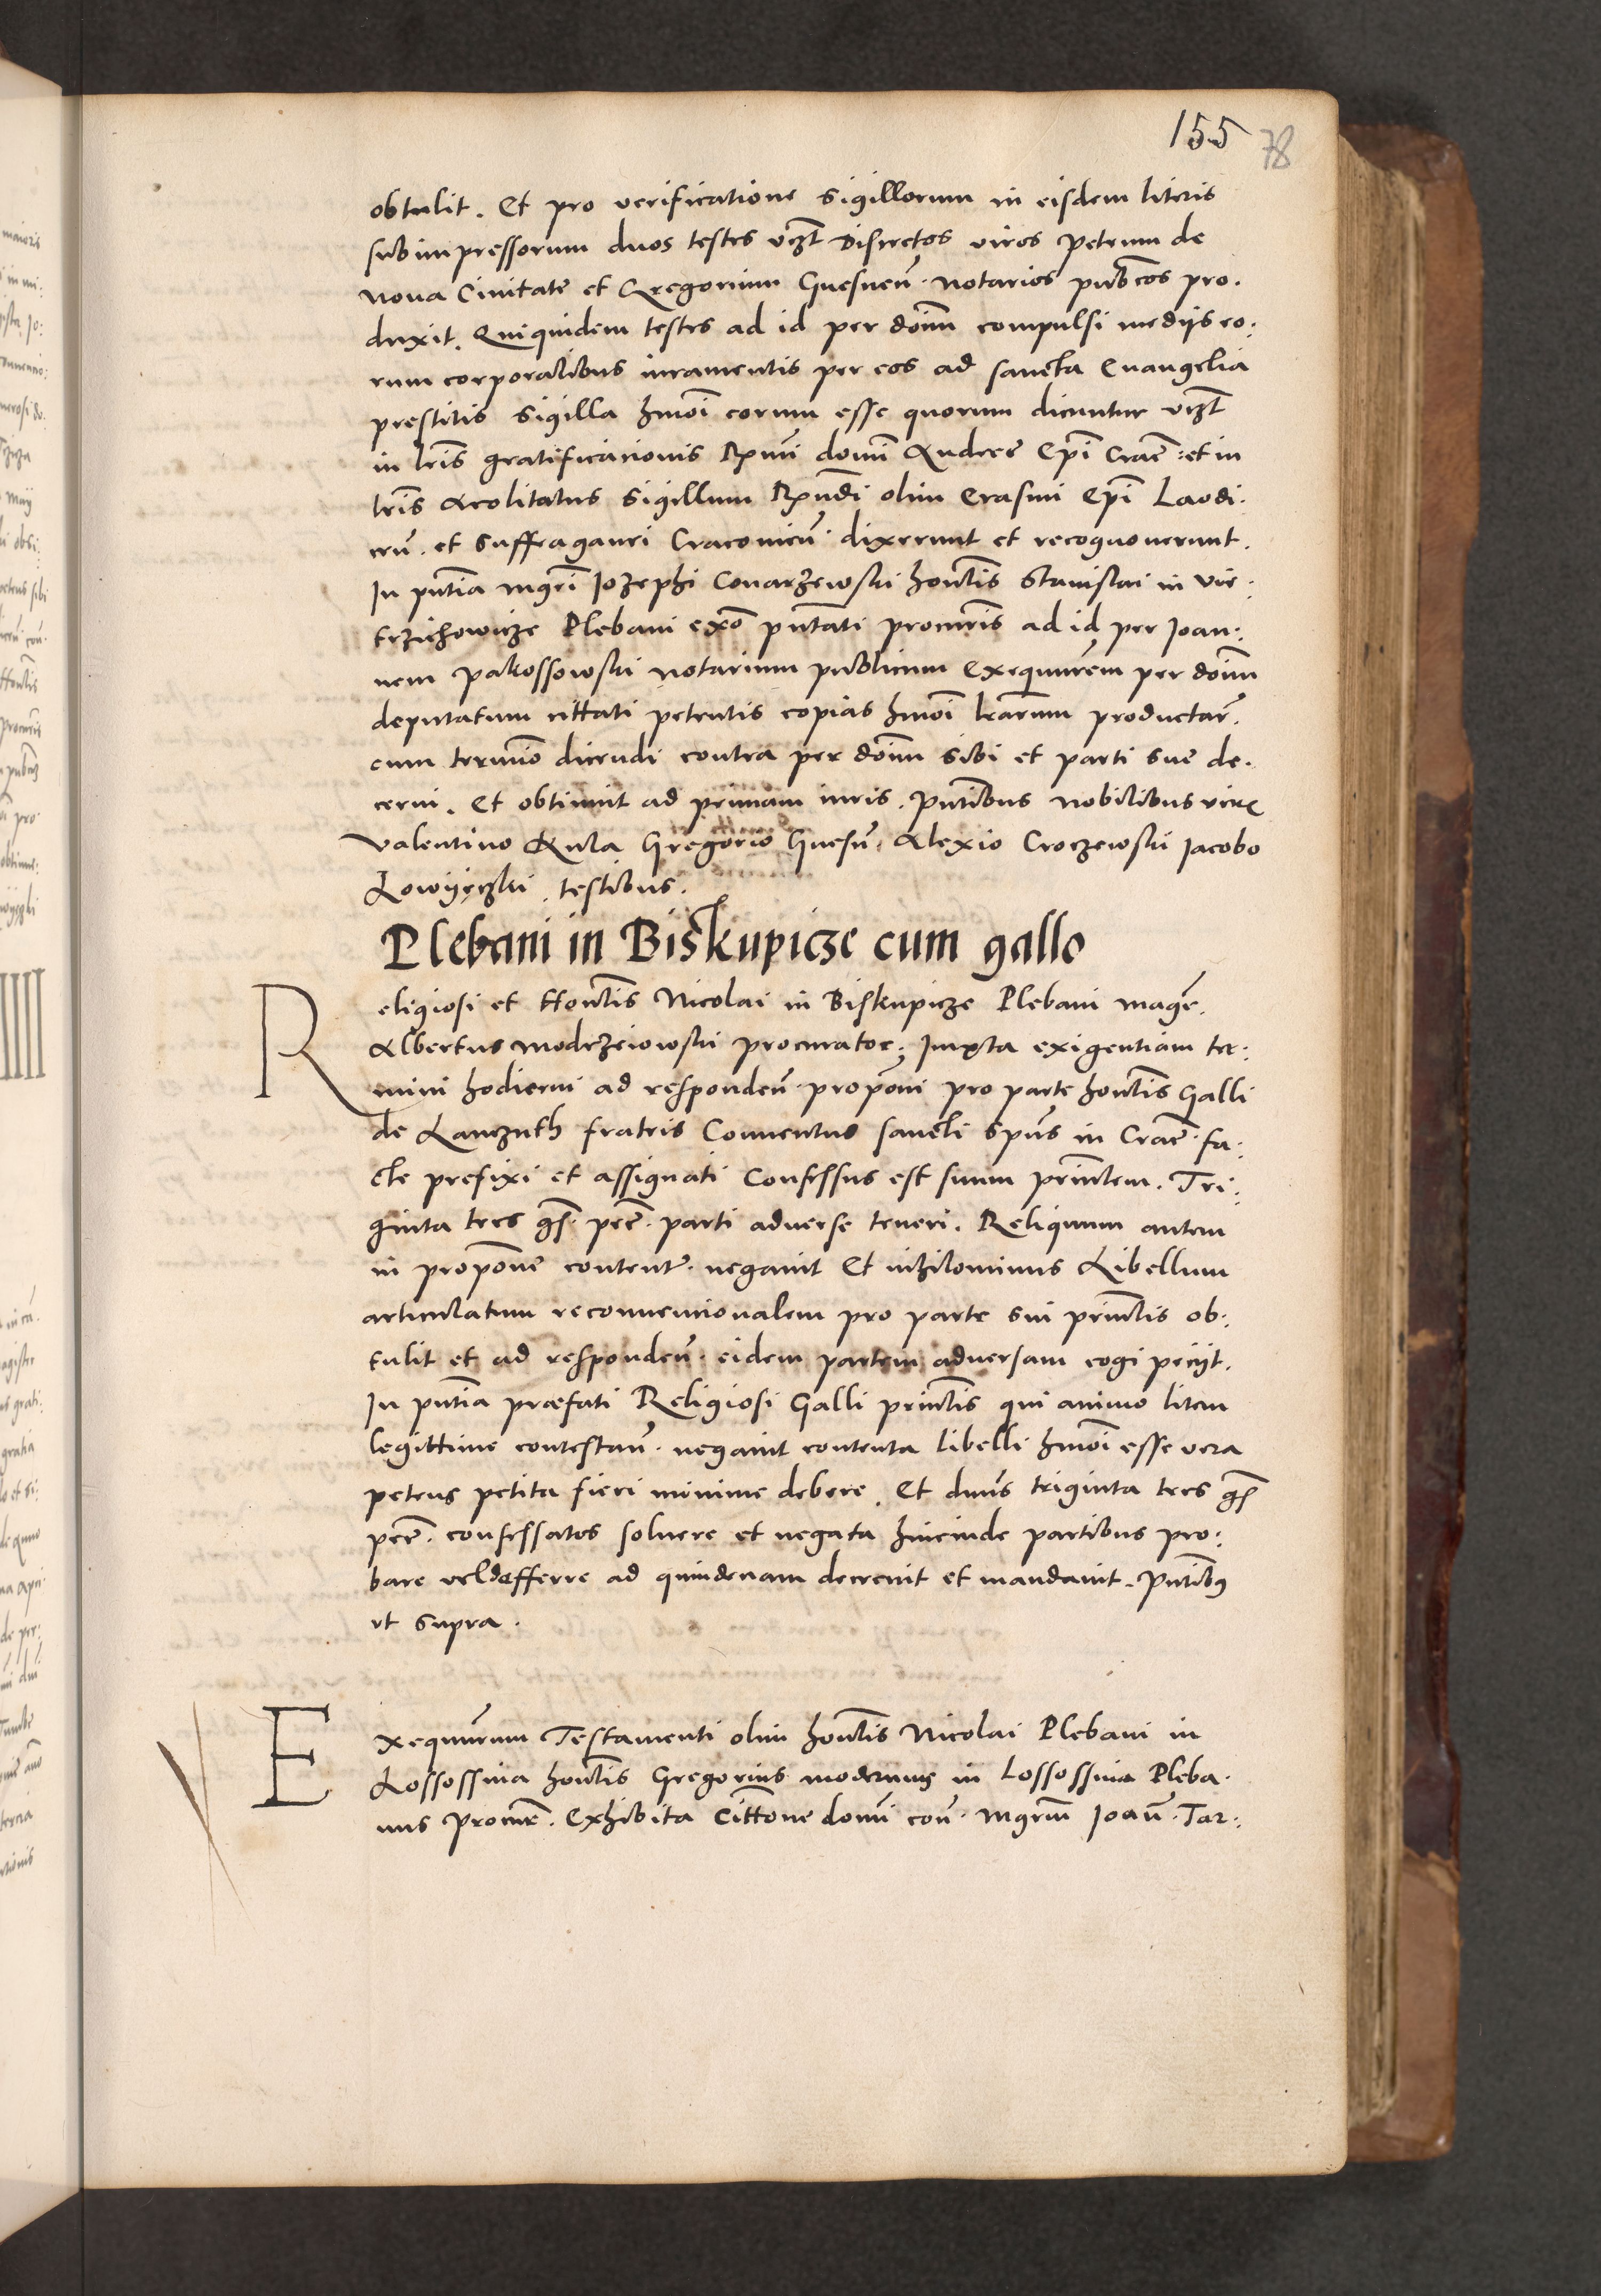 155 78
obtulit. Et pro verificatione sigillorum in eisdem literis
subimpressorum duos testes vizt discretos viros Petrum de
nova Civitate et Gregorium Gnesnen̄. notarios pub͞cos pro.
duxit. Quiquidem testes ad id per dom̄ compulsi medijs eo:
rum corporalibus iuramentis per eos ad sancta Evangelia
prestitis sigilla hm̄oi eorum esse quorum dicuntur vizt
in lr̄is gratificacionis Rm̄i domī Andree Ep̄i Crac̄: et in
lr̄is Acolitatus sigillum Rn̄di olim Erasmi Ep̄i Laodi.
cen̄. et Suffraganei Cracovien̄. dixerunt et recognoverunt.
In pn̄tia mgr̄i Iozephi Conarzewski hon̄lis Stanislai in Vie:
trzichowicze Plebani ex͞o pn̄tati procur̄is ad id per Ioan:
nem Pakossowski notarium publicum Exequūrem per dom̄
deputatum cittati petentis copias hm̄oi lr̄arum productar̄.
cum termīo dicendi contra per dom̄ sibi et parti sue de.
cerni. Et obtinuit ad primam iuris. Pn̄tibus nobilibus viris
Valentino Aula Gregorio Gnesn̄. Alexio Croczewski Iacobo
Lowyęczki testibus.
Plebani in Biskupicze cum gallo
Religiosi et Hon̄lis Nicolai in Biskupicze Plebani mage͞.
Albertus Modrzeiowski procurator: Iuxta exigentiam ter:
mini hodierni ad responden̄. propōni pro parte hon̄lis Galli
de Lanczuth fratris Conventus sancti Sp̄us in Crac̄. fa:
cte prefixi et assignati Confessus est suum prin̄lem. Tri:
ginta tres gs̄. pec̄. parti adverse teneri. Reliquum autem
in propōne content̄. negavit Et nihilominus Libellum
articulatum reconvencionalem pro parte sui prin̄lis ob:
tulit et ad responden̄. eidem partem adversam cogi peciit.
In pn̄tia præfati Religiosi Galli prin̄lis qui animo litem
legittime contestan̄. negavit contenta libelli hm̄oi esse vera
petens petita fieri minime debere. Et dn̄us triginta tres gs̄
pec̄. confessatos solvere et negata hincinde partibus pro:
bare vel defferre ad quindenam decrevit et mandavit. Pn̄tibus
ut supra.
Exequūrum Testamenti olim hon̄lis Nicolai Plebani in
Lossossina hon̄lis Gregorius modernus in Lossossina Pleba.
nus Procur̄. Exhibita Citt͞one domī con̄. mgr̄m Ioan̄. Tar: